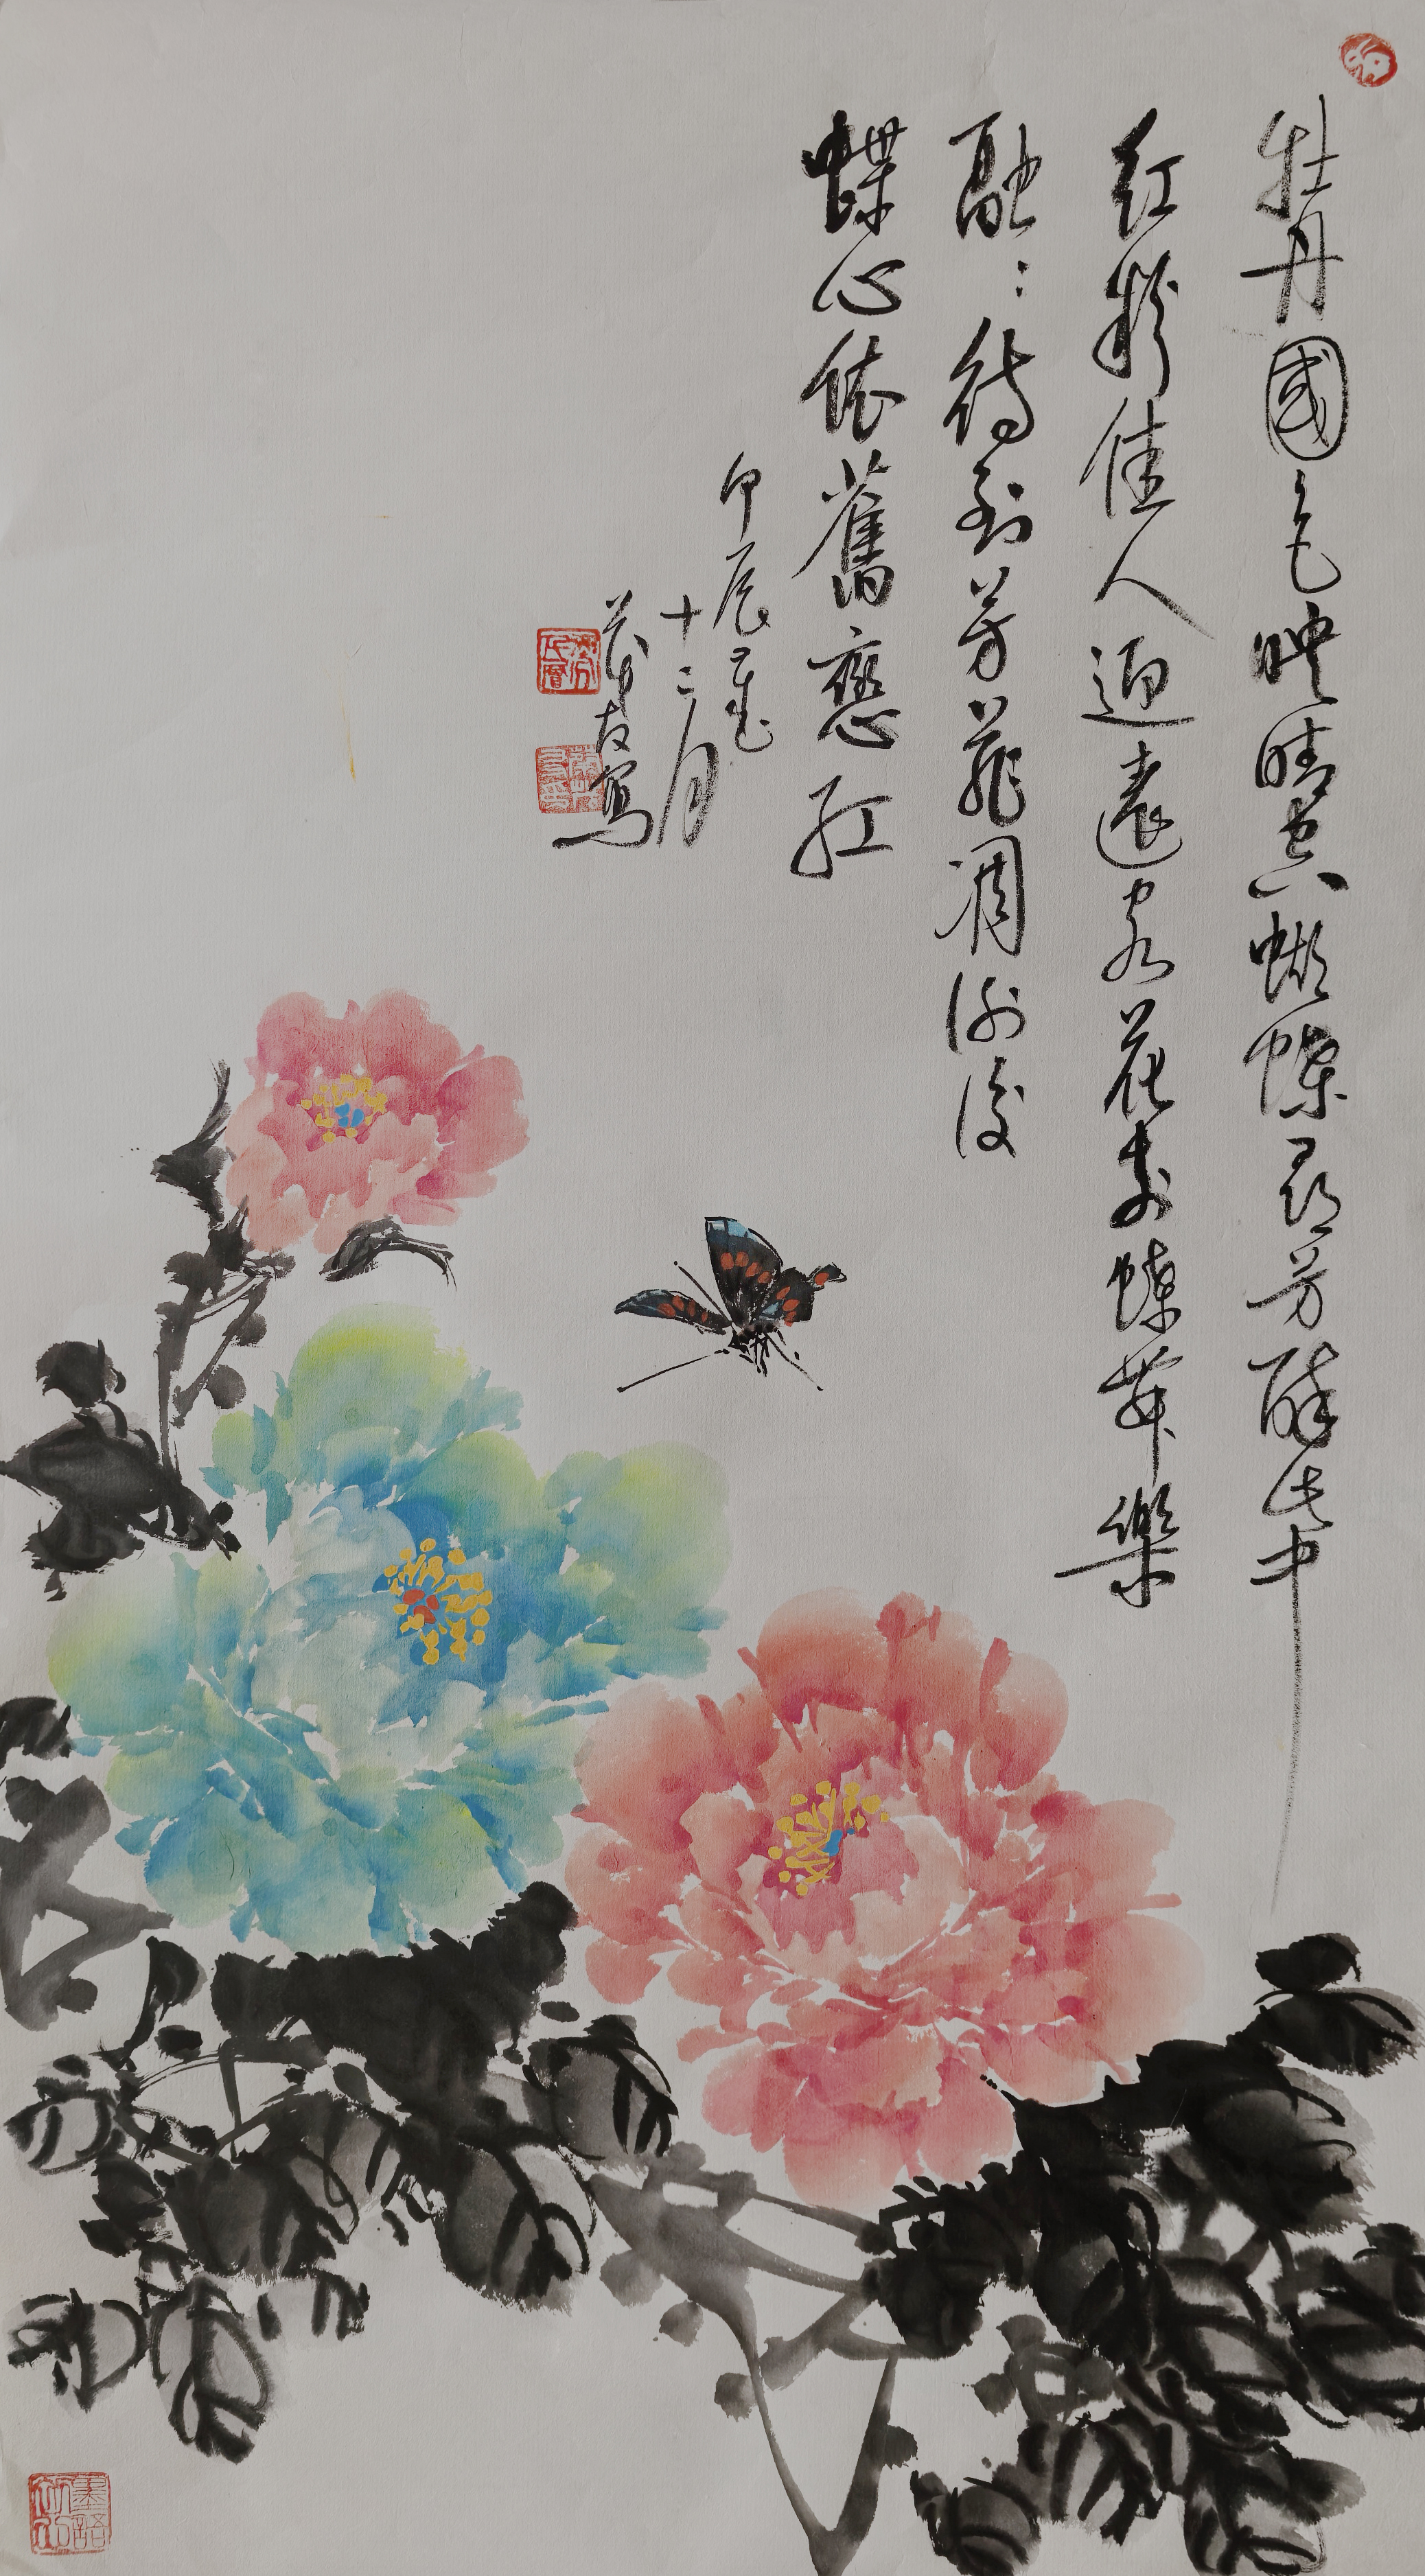 牡丹國色映晴空蝴蝶尋芳醉其中
紅粉佳人迎遠客花香蝶舞樂
融：待到芳菲凋謝後
蝶心依舊戀紅
甲辰年
十二月
友寫